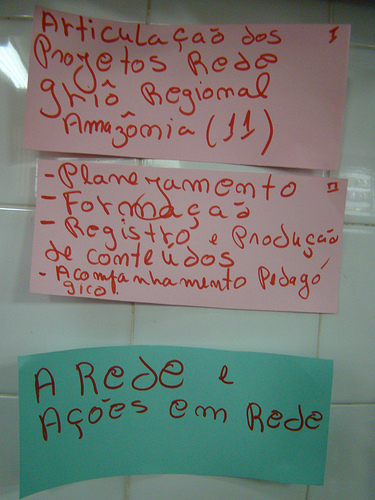 Articulação dos I
Projetos Rede
griô Regional
Amazônia (11)
- Planejamento II
- Formação
- Registro e Produção
de conteúdos
- Acompanhamento Pedagó
gico.
A Rede e
Ações em Rede